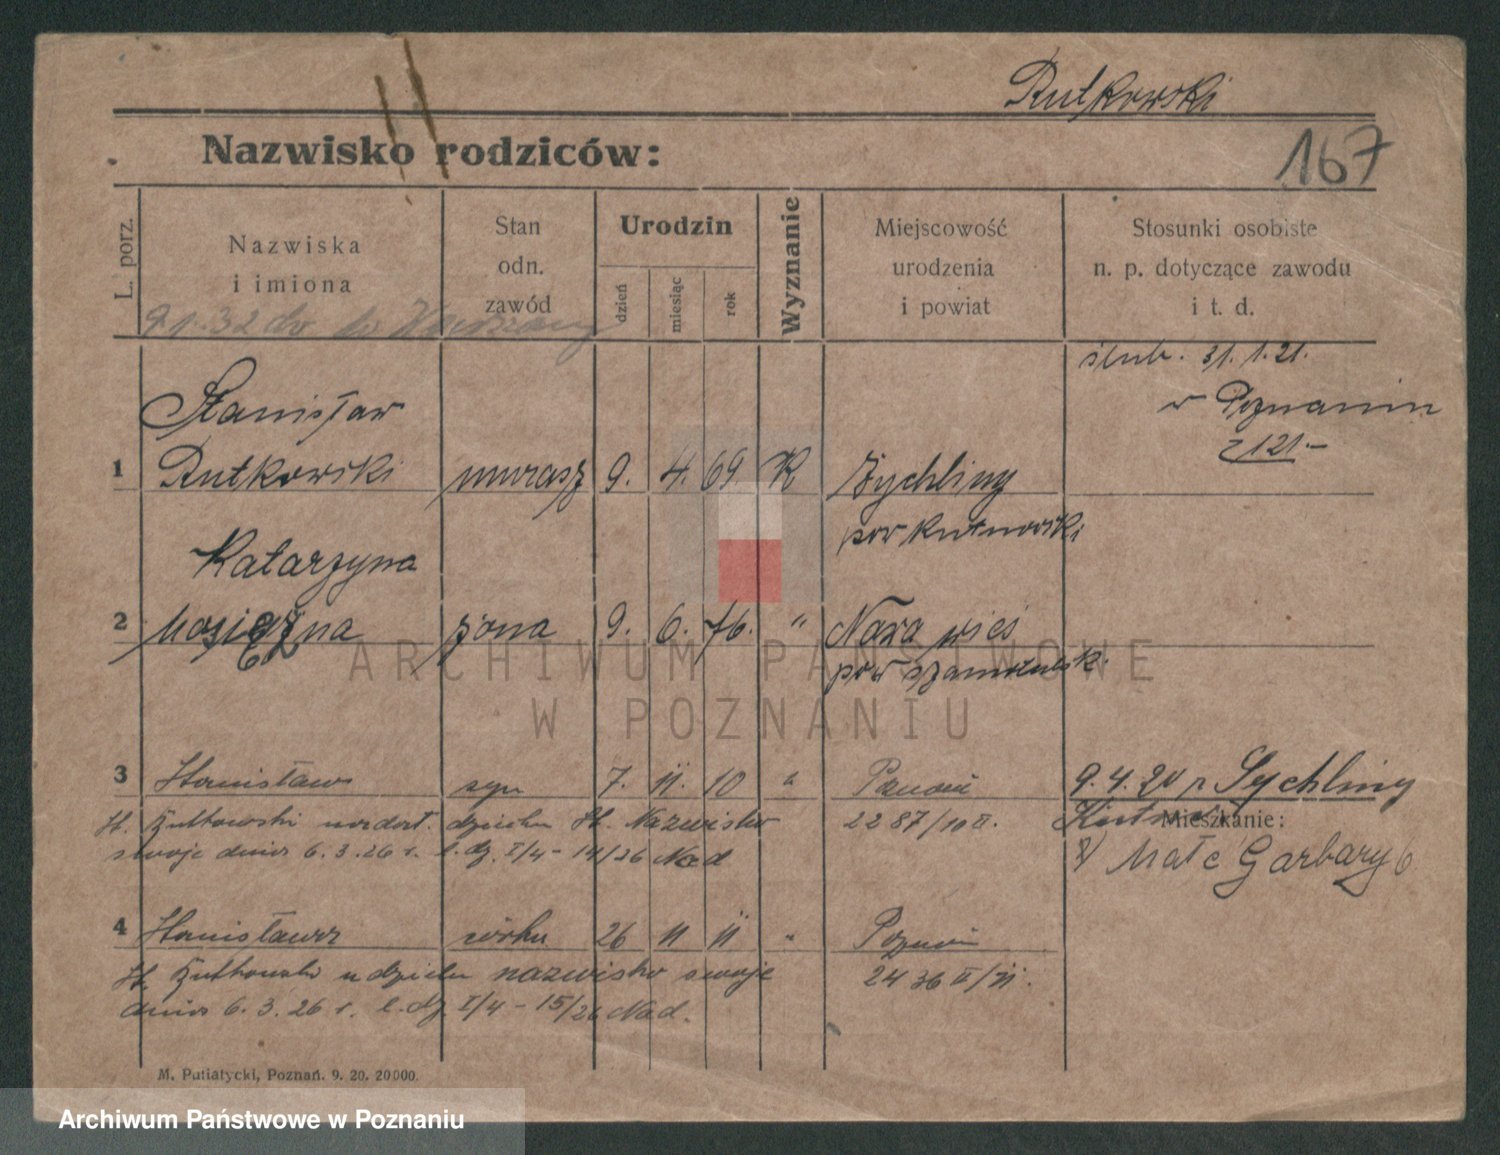 Rutkowski
167
Nazwisko rodziców:
L. porz.
Nazwiska
i imiona
Stan
odn.
zawód
Urodzin
dzień
miesiąc
rok
Wyznanie
Miejscowość
urodzenia
i powiat
Stosunki osobiste
n. p. dotyczące zawodu
i t. d.
9.1.32 do
ślub. 31.1.21.
w Poznaniu
z 121.-
Stanisław
1 Rutkowski murarz 9. 4. 69. K Żychliny
pow kutnowski
Katarzyna
2 żona 9. 6. 76. " Nowa wieś
pow szamotulsk.
3 Stanisław syn 7. 11. 10 " Poznań 9.4.20 z Żychliny
St. Rutkowski dziecku St. Nazwisko 2287/10 II.
Mieszkanie:
swoje dnia 6.3.26 r. l.dz. I/4 - 14/26 Nad
Małe Garbary 6
4 Stanisława córka 26 11 11 " Poznań
St. Rutkowski udzielu nazwisko swoje 2436 II/11.
dnia 6.3.26 r. l.dz. I/4 - 15/26 Nad.
M. Putiatycki, Poznań. 9. 20. 20000.
ARCHIWUM PAŃSTWOWE
W POZNANIU
Archiwum Państwowe w Poznaniu